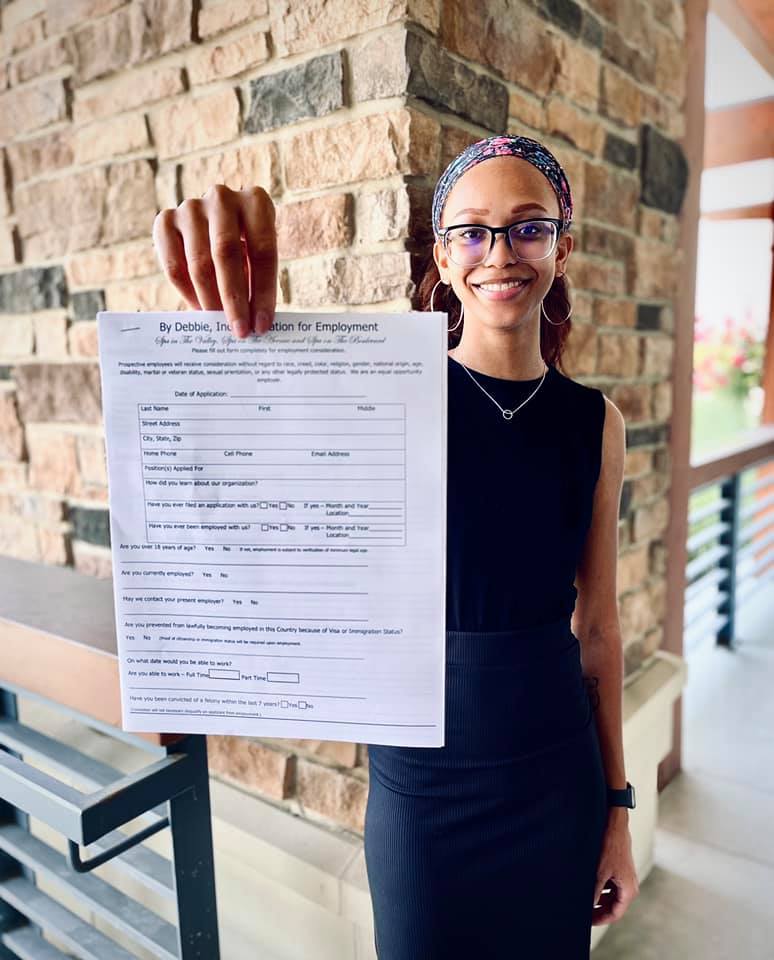 By Debbie, Inc ation for Employment
Spa in The Valley, Spa on The Avenue and Spa on The Boulevard
Please fill out form completely for employment consideration.
Prospective employees will receive consideration without regard to race, creed, color, religion, gender, national origin, age,
disability, marital or veteran status, sexual orientation, or any other legally protected status. We are an equal opportunity
employer.
Date of Application:
Last Name First Middle
Street Address
City, State, Zip
Home Phone Cell Phone Email Address
Position(s) Applied For
How did you learn about our organization?
Have you ever filed an application with us? Yes No If yes – Month and Year
Location
Have you ever been employed with us? Yes No If yes – Month and Year
Location
Are you over 18 years of age? Yes No If not, employment is subject to verification of minimum legal age.
Are you currently employed? Yes No
May we contact your present employer? Yes No
Are you prevented from lawfully becoming employed in this Country because of Visa or Immigration Status?
Yes No (Proof of citizenship or immigration status will be required upon employment.
On what date would you be able to work?
Are you able to work – Full Time Part Time
Have you been convicted of a felony within the last 7 years? Yes No
(Conviction will not necessarily disqualify an applicant from employment.)